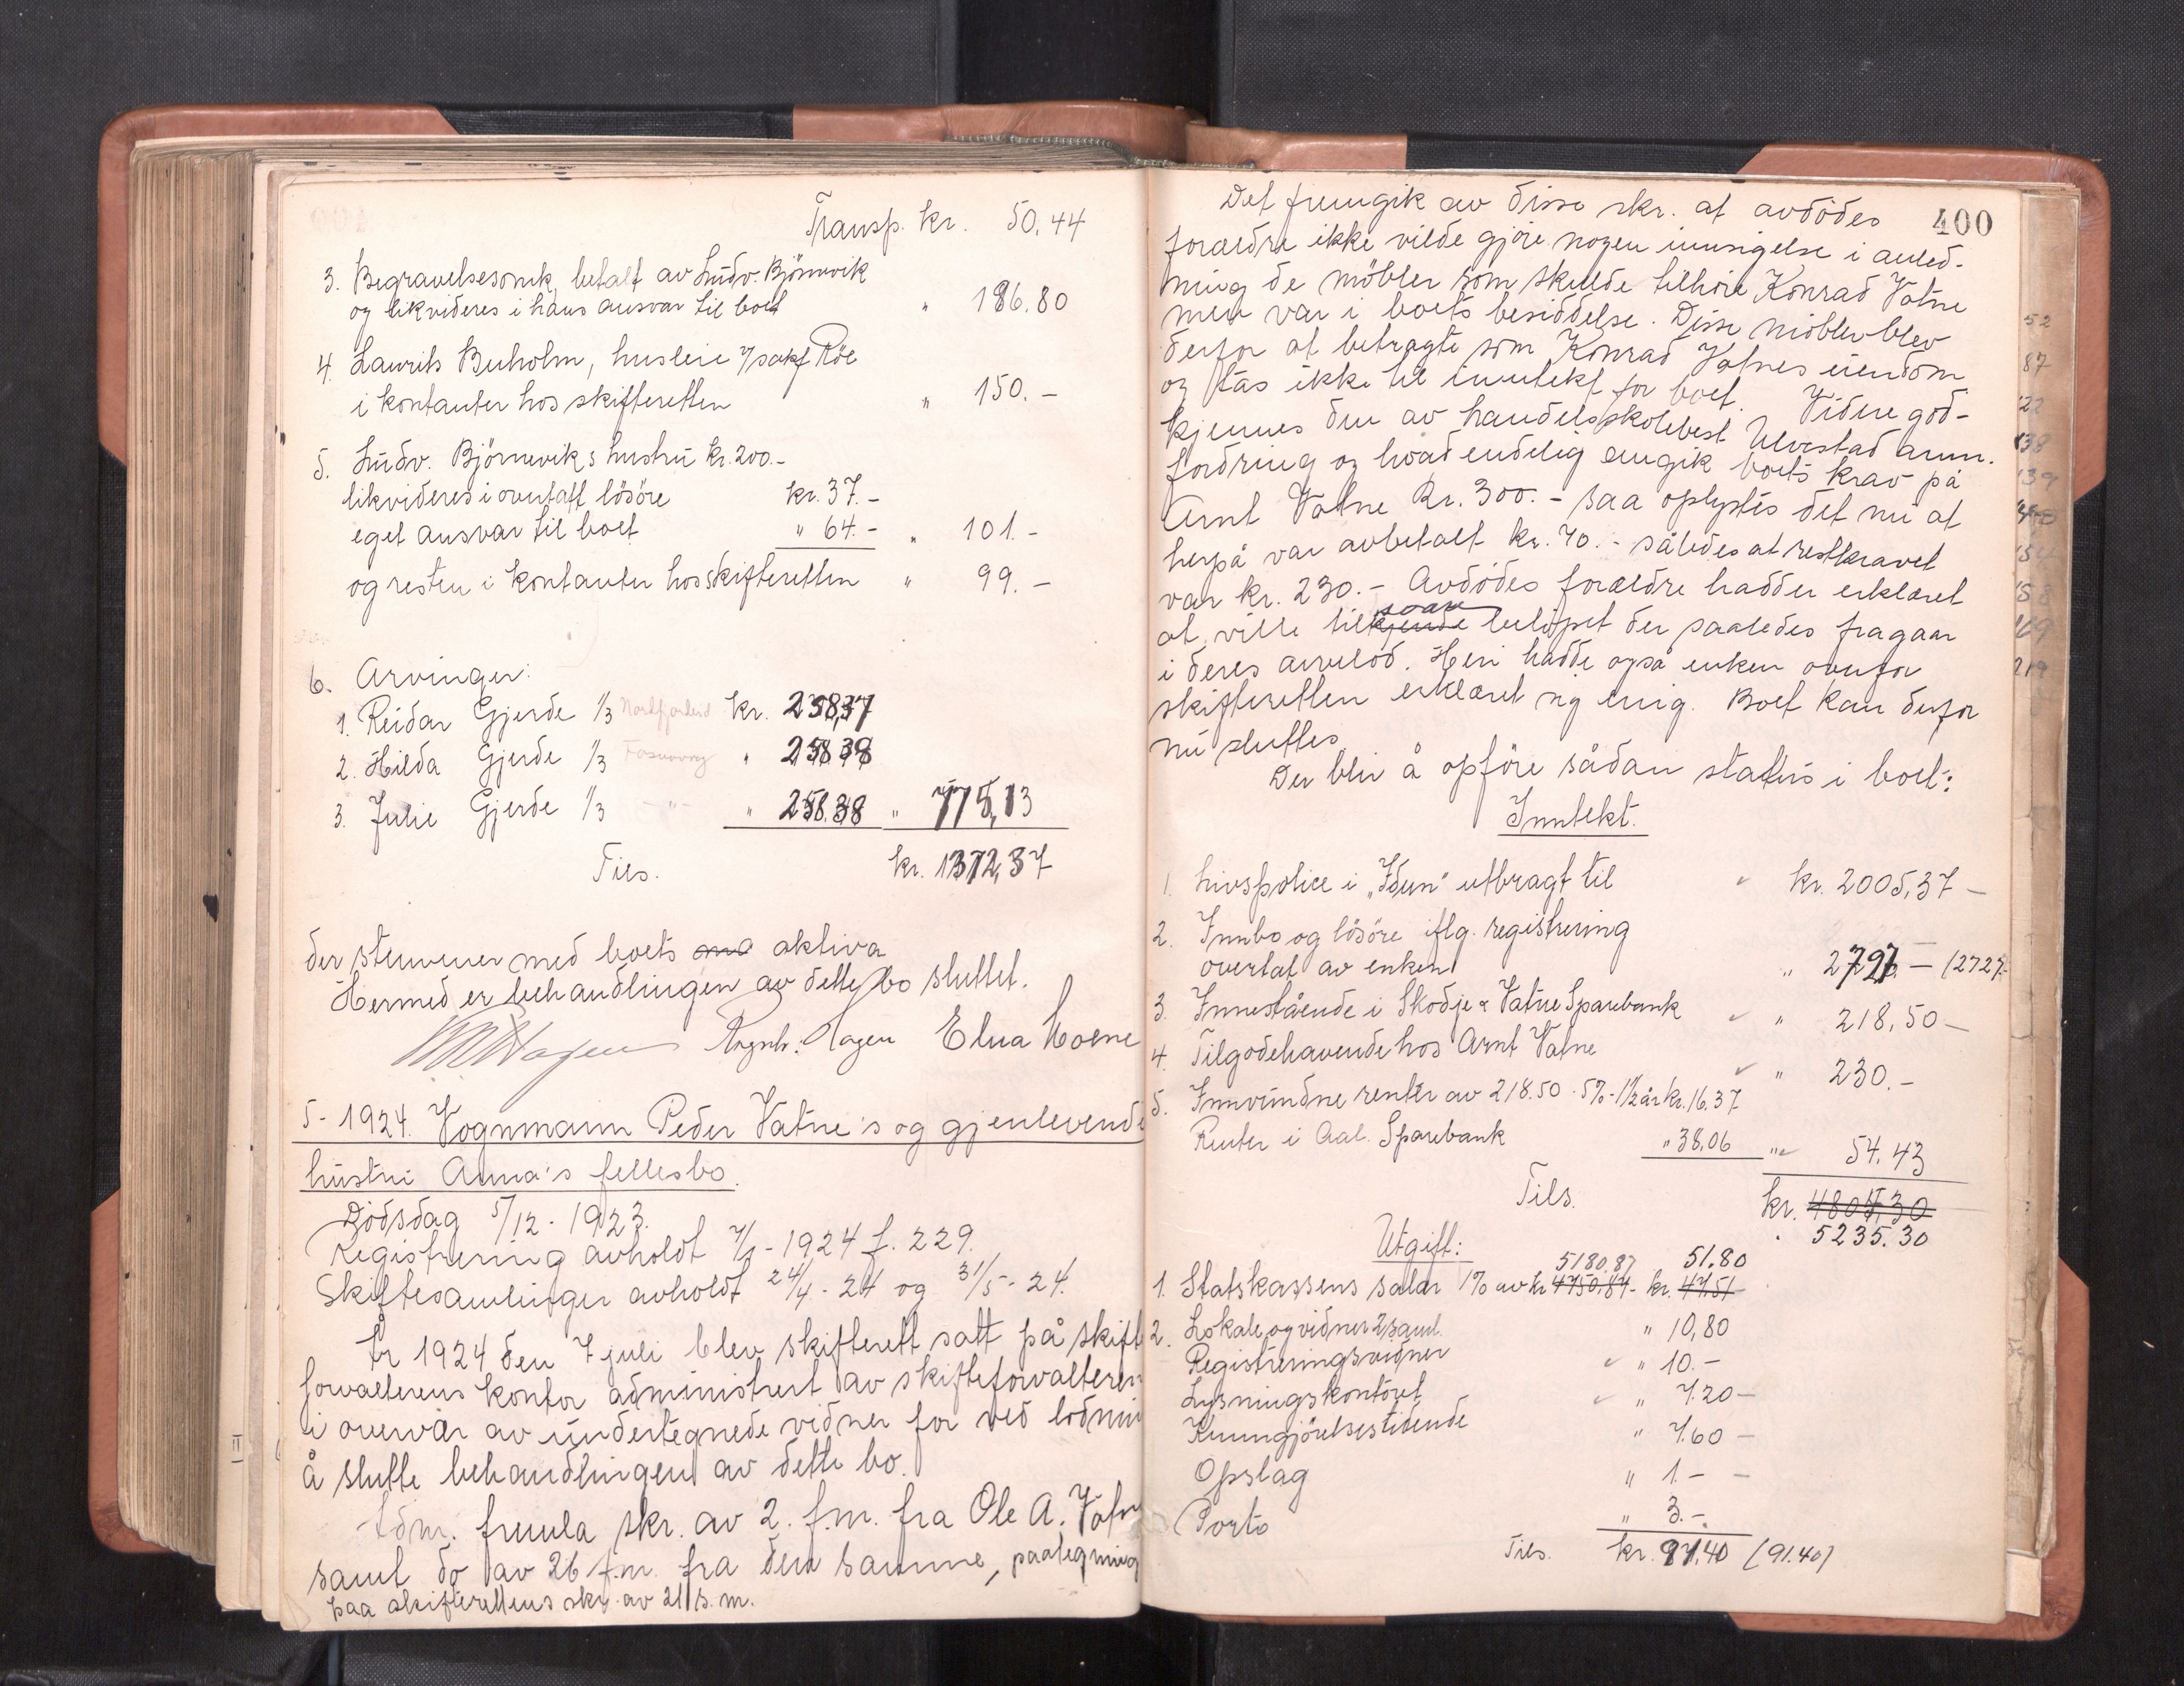 Transp. kr. 50.44
3. Begravelsesomk, betalt av Ludv. Björnevik
og likvideres i hans ansvar til boet " 186.80
4. Laurits Buholm, husleie v/sakf Röe
i kontanter hos skifteretten " 150.-
5. Ludv. Björneviks hustru kr. 200.-
likvideres i overtatt lösöre kr. 37.-
eget ansvar til boet " 64.- " 101.-
og resten i kontanter hos skifteretten " 99.-
6. Arvinger:
1. Reidar Gjerde 1/3 Nordfjordeid kr. 258,37
2. Hilda Gjerde 1/3 " 258.38
3. Julie Gjerde 1/3 - " - " 258.38 " 775,13
Tils. kr. 1372,37
der stemmer med boets aktiva
Hermed er behandlingen av dette bo sluttet.
Ragnh. Hagen Elna
5 - 1924. Vognmann Peder Vatne's og gjenlevende
hustru Anna's fellesbo.
Dödsdag 5/12 - 1923.
Registrering avholdt 7/1 - 1924 f. 229.
Skiftesamlinger avholdt 24/4 - 24 og 31/5 - 24.
År 1924 den 7 juli blev skifterett satt på skift
forvalterens kontor administrert av skifteforvalteren
i overvær av undertegnede vidner for ved lodning
å slutte behandlingen av dette bo.
Adm. fremla skr. av 2. f.m. fra Ole A. Vatne
samt do av 26 f.m. fra den samme, paategning
paa skifterettens skr. av 21 s.m.
400
Det fremgik av disse skr. at avdödes
forældre ikke vilde gjöre nogen innsigelse i anled-
ning de möbler som skulde tilhöre Konrad Vatne
men var i boets besiddelse. Disse möbler blev
derfor at betragte som Konrad Vatnes eiendom
og tas ikke til inntekt for boet. Videre god-
kjennes den av handelsskolebest. Ulvestad anm.
fordring og hvad endelig angik boets krav på
Arnt Vatne kr. 300.- saa oplystes det nu at
herpå var avbetalt kr. 70.- således at restkravet
var kr. 230.- Avdödes forældre hadde erklæret
at ville tilsvare beløpet der saaledes fragaar
i deres arvelod. Heri hadde også enken overfor
skifteretten erklæret sig enig. Boet kan derfor
nu sluttes.
Der blir å opföre sådan status i boet:
Inntekt.
1. Livspolice i „Idun" utbragt til kr. 2005,37 -
2. Innbo og lösöre iflg. registrering
overtat av enken " 2727.- (2727.-
3. Innestående i Skodje & Vatne Sparebank " 218,50 -
4. Tilgodehavende hos Arnt Vatne " 230.-
5. Innvundne renter av 218.50 - 5% - 1 1/2 år kr. 16.37
Renter i Aal. Sparebank " 38.06 " 54.43
Tils. kr. 4804.30
" 5235.30
Utgift: 5180.87 51.80
1. Statskassens salær 1% av kr 4750.87 - kr. 47.51
2. Lokale og vidner 2 saml. " 10,80
Registreringsvidner " 10.-
Lysningskontoret " 7.20 -
Kunngjörelsestidende " 7.60 -
Opslag " 1.- -
Porto " 3.-
Tils. kr. 91.40 (91.40)
52
87
122
138
139
158
169
219